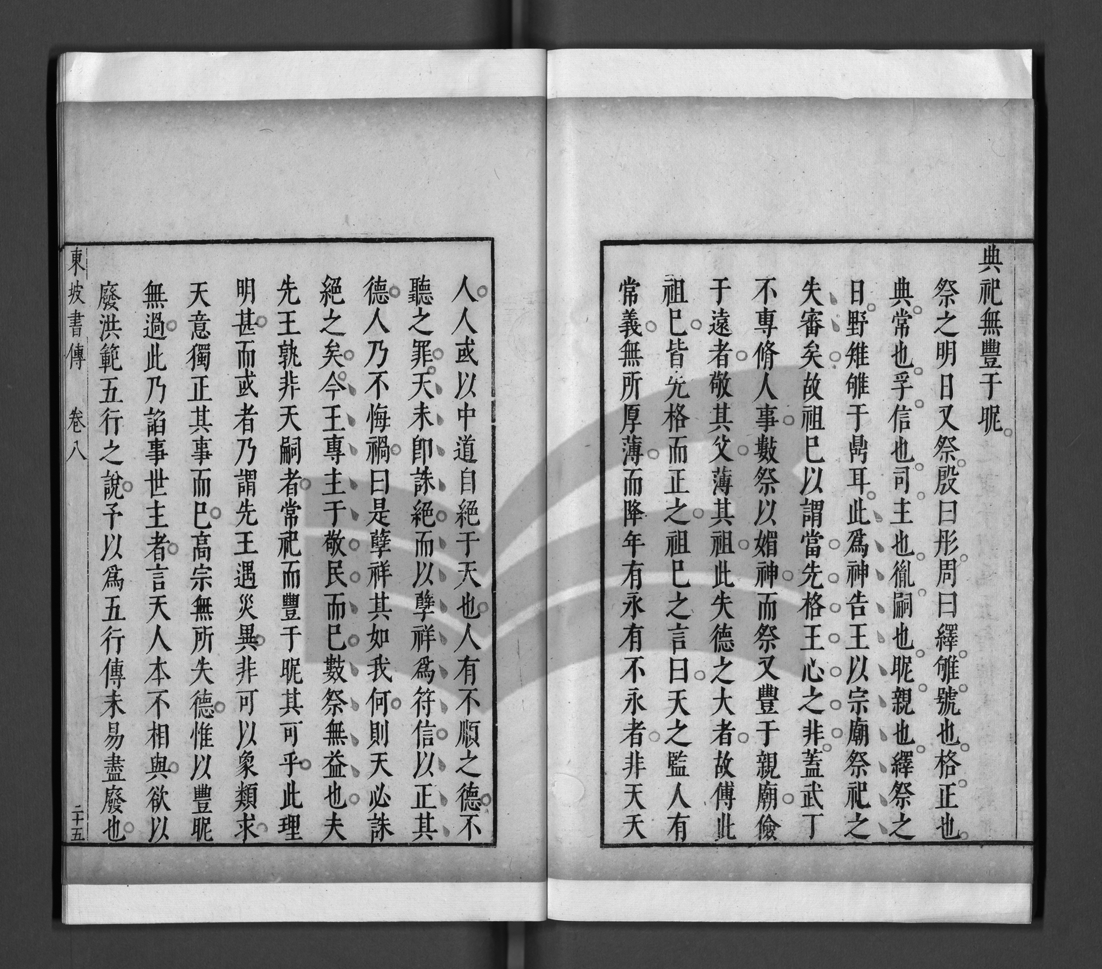 典祀無豐于昵
祭之明日又祭殷曰肜周曰繹雊號也格正也
典常也孚信也司主也胤嗣也昵親也繹祭之
日野雉雊于鼎耳此爲神告王以宗廟祭祀之
失審矣故祖巳以謂當先格王心之非蓋武丁
不專脩人事數祭以媚神而祭又豐于親廟儉
于遠者敬其父薄其祖此失德之大者故傅此
祖巳皆先格而正之祖巳之言曰天之監人有
常義無所厚薄而降年有永有不永者非天夭
人人或以中道自絕于天也人有不順之德不
聽之罪天未卽誅絕而以孽祥爲符信以正其
德人乃不悔禍曰是孽祥其如我何則天必誅
絕之矣今王專主于敬民而巳數祭無益也夫
先王孰非天嗣者常祀而豐于昵其可乎此理
明甚而或者乃謂先王遇災異非可以象類求
天意獨正其事而巳高宗無所失德惟以豐昵
無過此乃諂事世主者言天人本不相與欲以
廢洪範五行之說予以爲五行傳未易盡廢也
東坡書傳 卷八 二十五